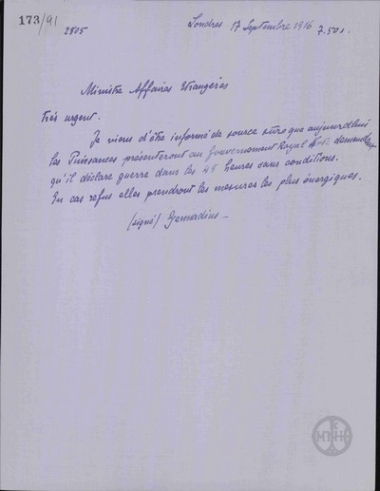 173/91
2805
Londres 17 Septembre 1916
7.50 s.
Ministre Affaires Etrangères
Très urgent.
Je viens d'être informé de source sûre que aujourd'hui
les Puissances présenteront au Gouvernement Royal demandant
qu'il déclare guerre dans les 48 heures sans conditions.
En cas refus elles prendront les mesures les plus énergiques.
(signé) Gennadius